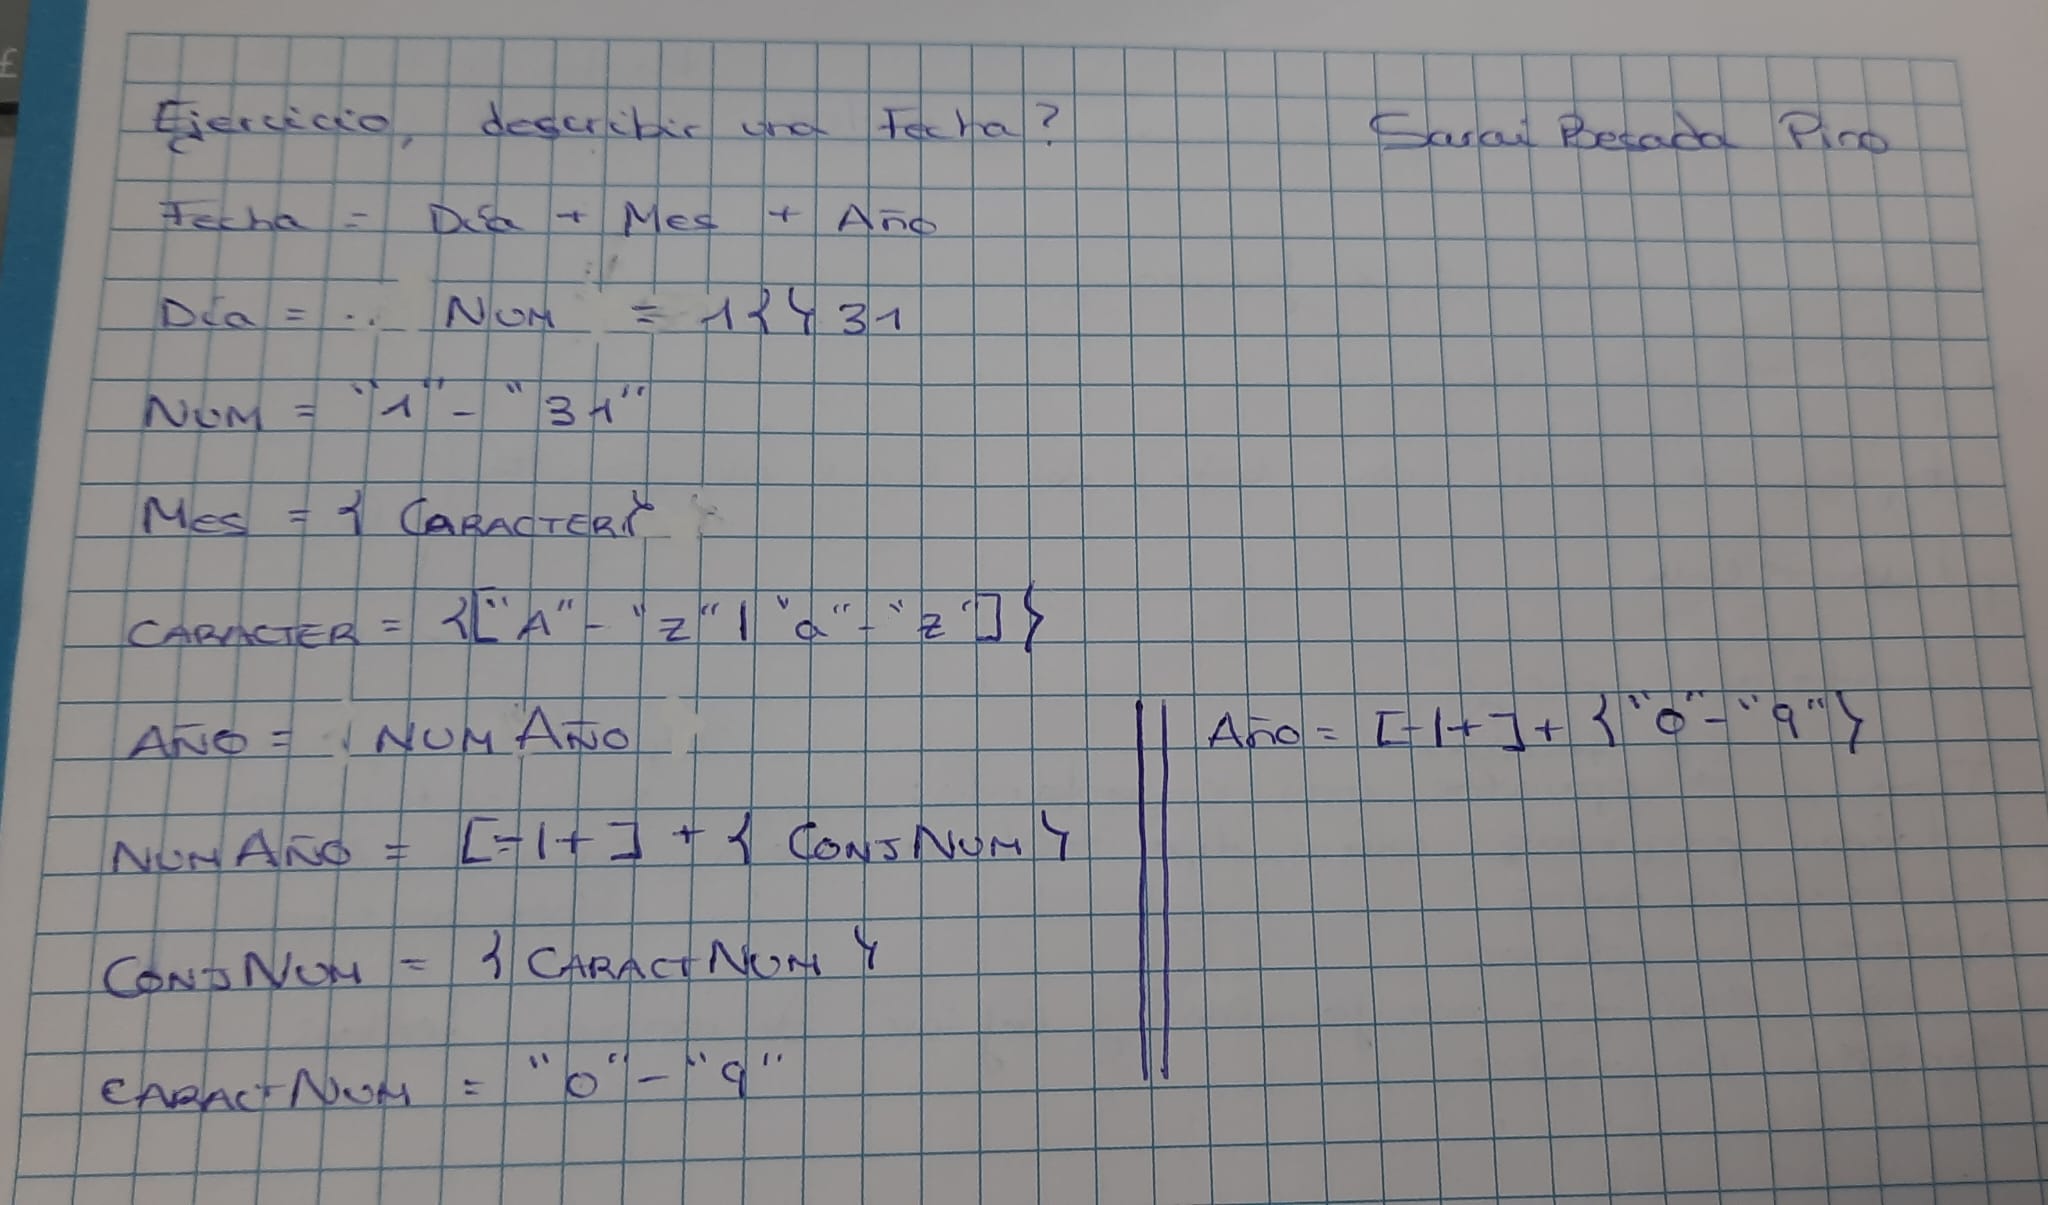 Ejercicio, describir una Fecha?
Sarai Besada Pino
Fecha = Día + Mes + Año
Día = .. NUM = 1{} 31
NUM = "1" - "31"
Mes = { CARACTER}
CARACTER = {["A" - "z" | "a" - "z"]}
AÑO = NUM AÑO
Año = [-|+] + {"0" - "9"}
NUM AÑO = [-|+] + { CONJ NUM }
CONJ NUM = { CARACT NUM }
CARACT NUM = "0" - "9"